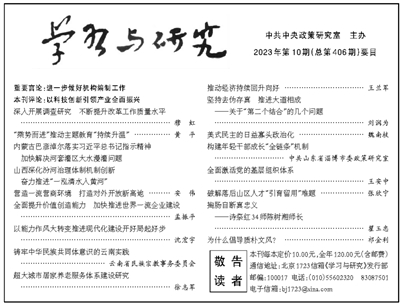 学习与研究
中共中央政策研究室 主办
2023年第10期(总第406期)要目
重要言论:进一步做好机构编制工作
本刊评论:以科技创新引领产业全面振兴
深入开展调查研究 不断提升改革工作质量水平
穆虹
“乘势而进”推动主题教育“持续升温” 黄平
内蒙古巴彦淖尔落实习近平总书记指示精神
加快解决河套灌区大水漫灌问题
山西深化汾河治理体制机制创新
奋力推进“一泓清水入黄河”
营造一流营商环境 打造对外开放新高地 安伟
全面提升价值创造能力 加快推进世界一流企业建设
孟振平
以能力作风大转变推进现代化建设开好局起好步
沈宏宇
铸牢中华民族共同体意识的云南实践
云南省民族宗教事务委员会
超大城市居家养老服务体系建设研究
徐志军
推动经济持续回升向好 王兰军
坚持去伪存真 推进大道相成
——关于“第二个结合”的几个问题
刘润为
美式民主的日益寡头政治化 魏南枝
构建年轻干部成长“全链条”机制
中共山东省淄博市委政策研究室
全面激活党的基层组织体系
王安中
破解落后山区人才“引育留用”难题 张欣宁
掏肠自断真忠义
——诗祭红34师陈树湘师长
瞿玉忠
为什么倡导质朴文风? 邓金利
敬告读者
本刊每本定价10.00元,全年120.00元(含邮费)
通信地址:北京1723信箱《学习与研究》发行部
邮编:100017 电话:(010)55602320 83087501
电子信箱:bj1723@sina.com